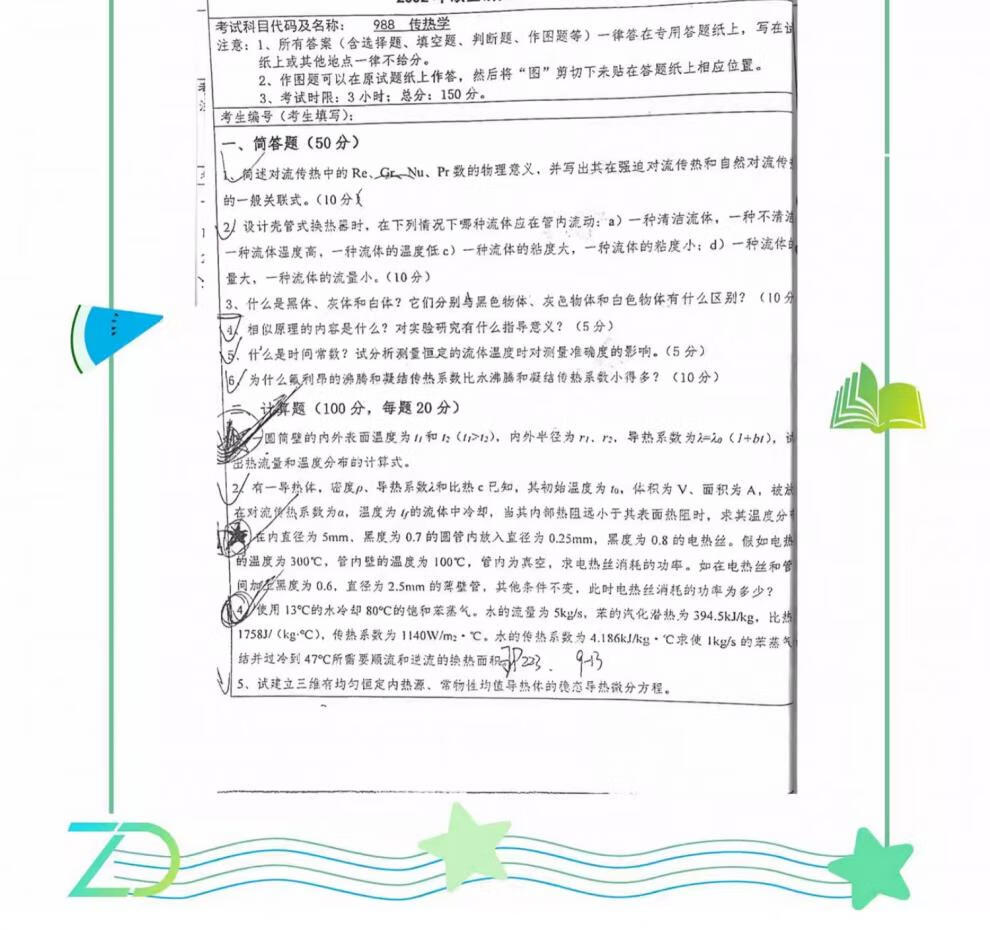 考试科目代码及名称： 988 传热学
注意：1、所有答案（含选择题、填空题、判断题、作图题等）一律答在专用答题纸上，写在试
纸上或其他地点一律不给分。
2、作图题可以在原试题纸上作答，然后将“图”剪切下来贴在答题纸上相应位置。
3、考试时限：3小时；总分：150分。
考生编号（考生填写）：
一、简答题（50分）
1、简述对流传热中的 Re、Gr、Nu、Pr 数的物理意义，并写出其在强迫对流传热和自然对流传
的一般关联式。（10分）
2、设计壳管式换热器时，在下列情况下哪种流体应在管内流动：a）一种清洁流体，一种不清洁
一种流体温度高，一种流体的温度低 c）一种流体的粘度大，一种流体的粘度小；d）一种流体的
量大，一种流体的流量小。（10分）
3、什么是黑体、灰体和白体？它们分别与黑色物体、灰色物体和白色物体有什么区别？（10分
4、相似原理的内容是什么？对实验研究有什么指导意义？（5分）
5、什么是时间常数？试分析测量恒定的流体温度时对测量准确度的影响。（5分）
6、为什么氟利昂的沸腾和凝结传热系数比水沸腾和凝结传热系数小得多？（10分）
二、计算题（100分，每题20分）
一圆筒壁的内外表面温度为 t₁和 t₂（t₁>t₂），内外半径为 r₁、r₂，导热系数为λ=λ₀（1+bt），试
出热流量和温度分布的计算式。
2、有一导热体，密度ρ、导热系数λ和比热 c 已知，其初始温度为 t₀，体积为 V、面积为 A，被放
在对流传热系数为α，温度为 tf的流体中冷却，当其内部热阻远小于其表面热阻时，求其温度分布
在内直径为 5mm、黑度为 0.7 的圆管内放入直径为 0.25mm，黑度为 0.8 的电热丝。假如电热
的温度为 300℃，管内壁的温度为 100℃，管内为真空，求电热丝消耗的功率。如在电热丝和管
间加上黑度为 0.6，直径为 2.5mm 的薄壁管，其他条件不变，此时电热丝消耗的功率为多少？
4、使用 13℃的水冷却 80℃的饱和苯蒸气。水的流量为 5kg/s，苯的汽化潜热为 394.5kJ/kg，比热
1758J/（kg·℃），传热系数为 1140W/m₂·℃。水的传热系数为 4.186kJ/kg·℃求使 1kg/s 的苯蒸气
结并过冷到 47℃所需要顺流和逆流的换热面积 P223、 9-13
5、试建立三维有均匀恒定内热源、常物性均值导热体的稳态导热微分方程。